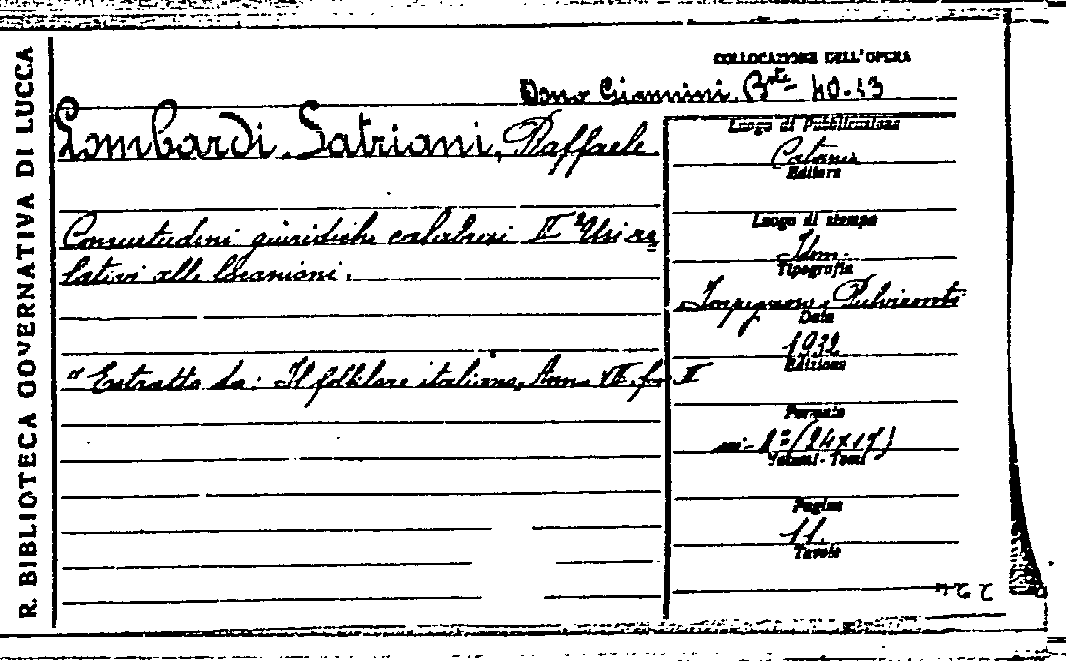 R. BIBLIOTECA GOVERNATIVA DI LUCCA
COLLOCAZIONE DELL'OPERA
Dono Giannini, Bta 40.13
Lombardi Satriani, Raffaele
Consuetudini giuridiche calabresi II° Usi re
lativi alle
"Estratto da: Il folklore italiano, Anno VII. fasc II
Luogo di Pubblicazione
Catania
Editore
Luogo di stampa
Idem.
Tipografia
Data
1932
Edizione
Formato
in-8°(24x17)
Volumi - Tomi
Pagine
11.
Tavole